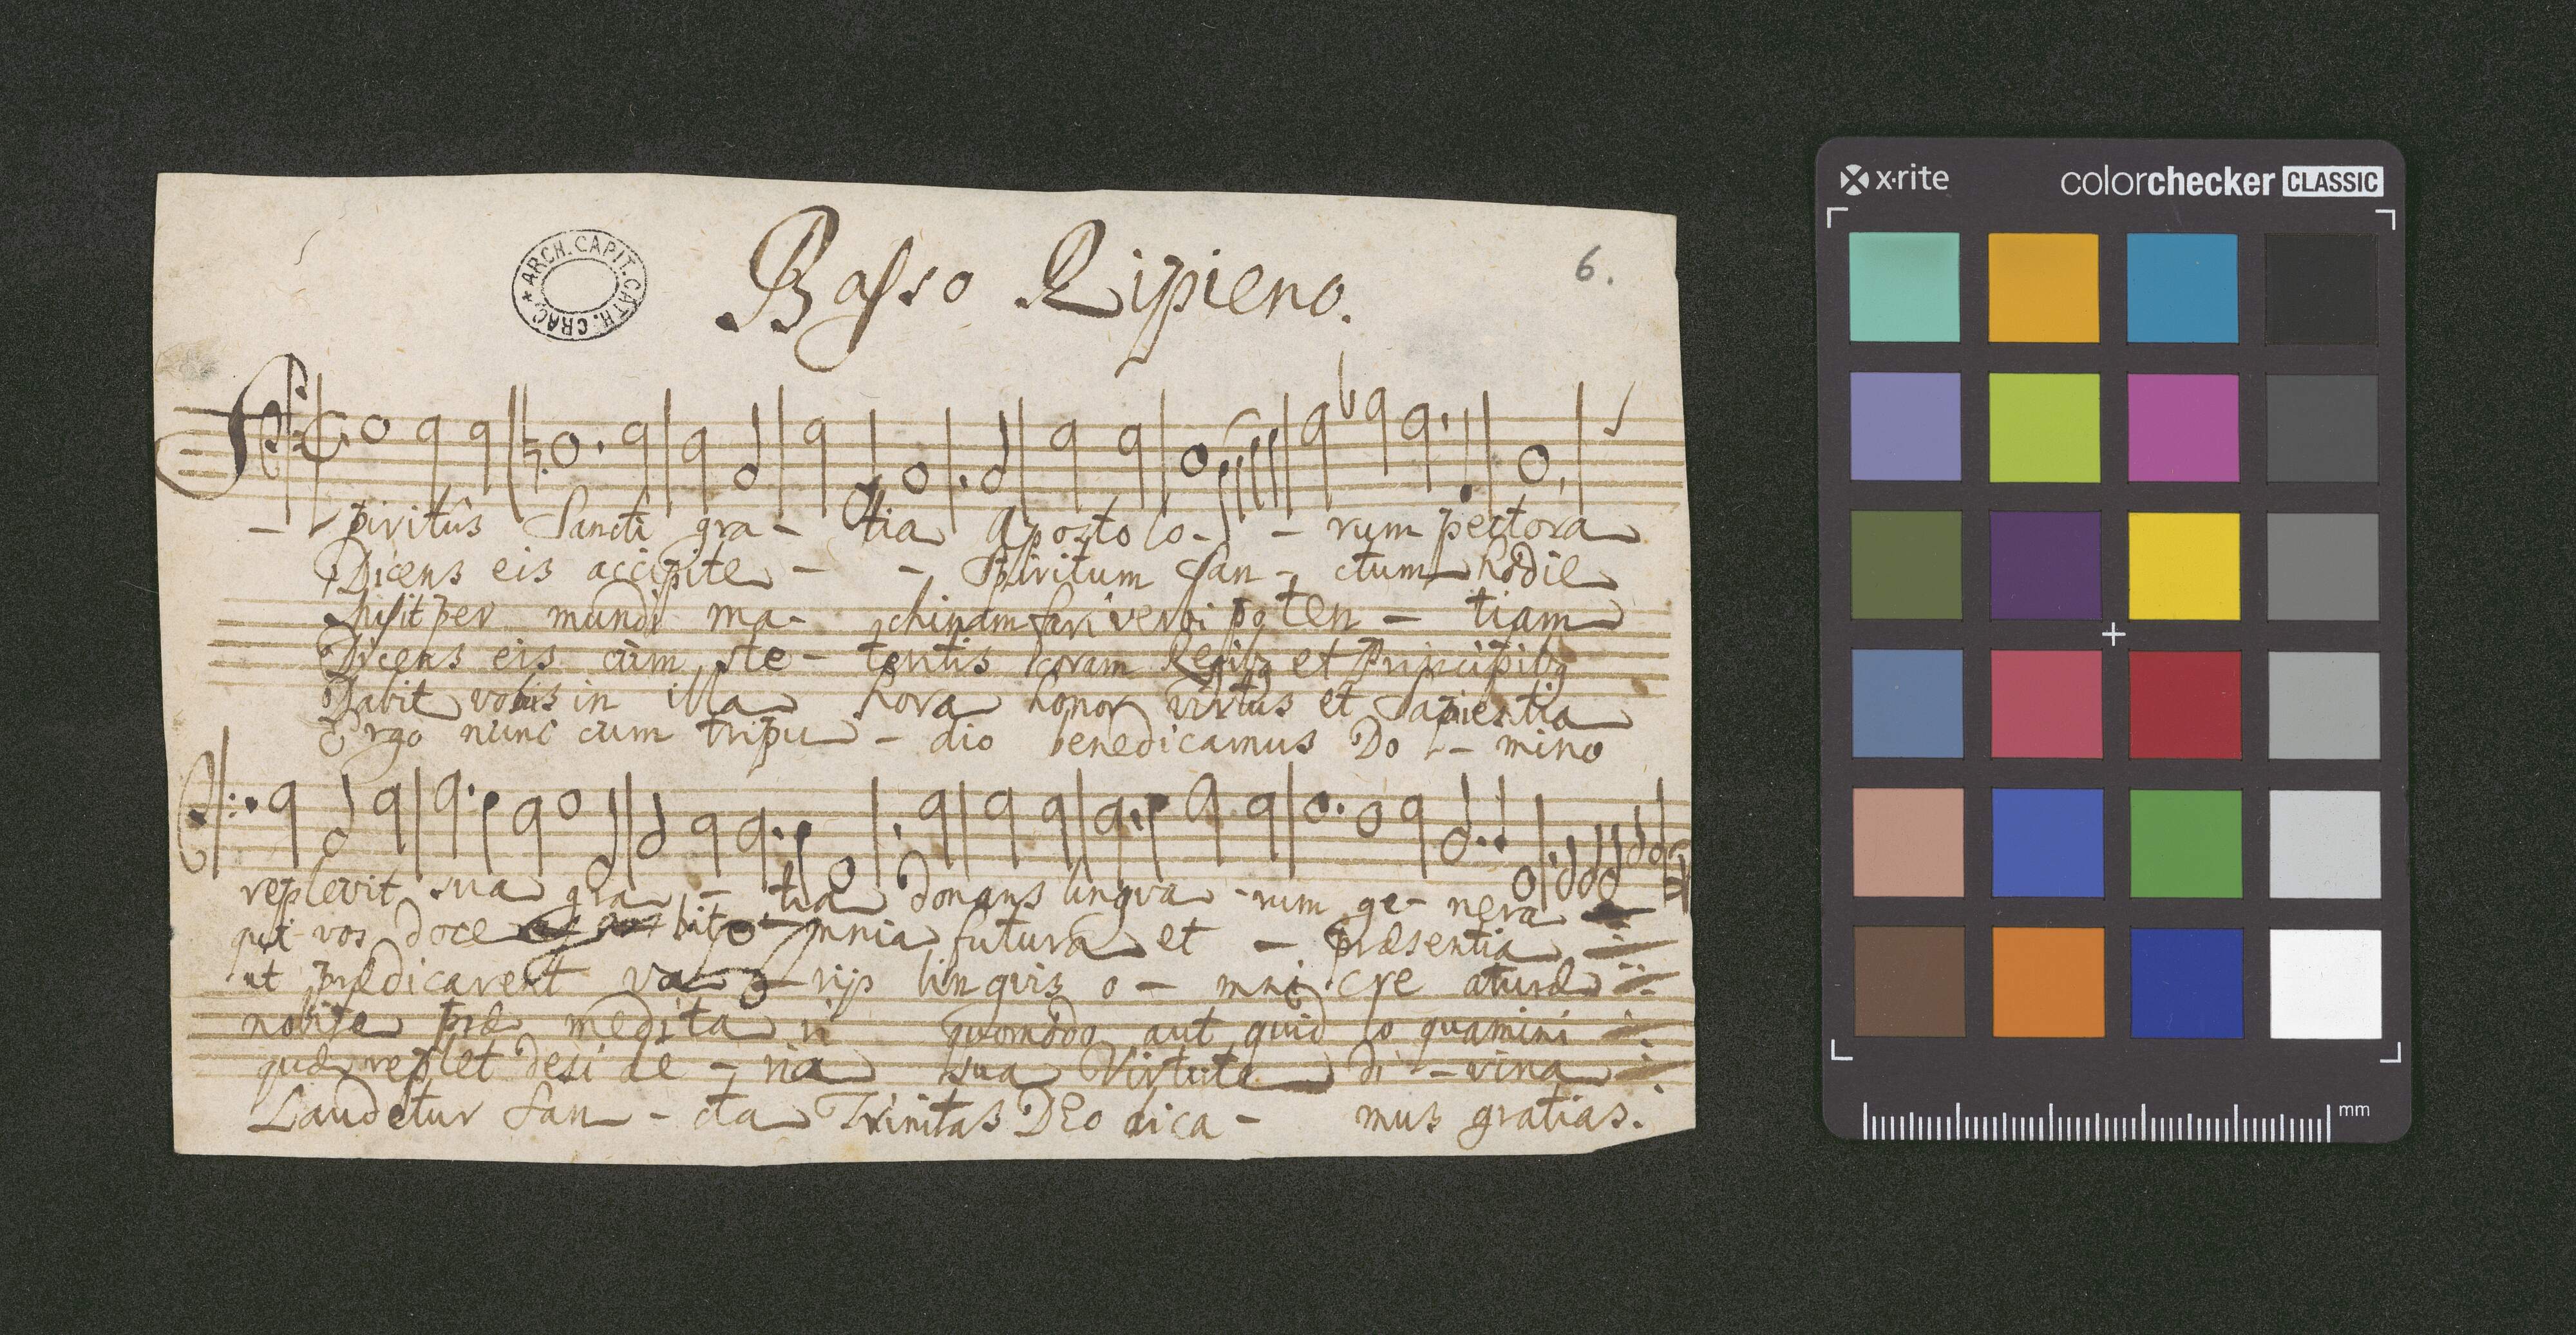 Basso Ripieno.
6.
* ARCH. CAPIT. CATH. CRAC.
Spiritûs Sancti gra - tia Aposto lo - - rum pectora
Dicens eis accipite - - Spiritum San - ctum hodie
Misit per mundi ma - chinam fari verbi poten - tiam
Dicens eis cùm ste - teritis coram Regibq et Principibq
Dabit vobis in illa hora honor virtus et Sapientia
Ergo nunc cum tripu - dio benedicamus Do - mino
replevit sua gra - tia donans lingva - rum ge - nera
qui vos doce bit o - mnia futura et - præsentia
ut prædicarent va - rijs linguis o - mni cre aturæ
nolite præ medita ri quomodo aut quid lo quamini
quæ replet desi de - ria sua Virtute di - vina
Laudetur San - cta Trinitas DEo dica - mus gratias.
x·rite
colorchecker CLASSIC
mm